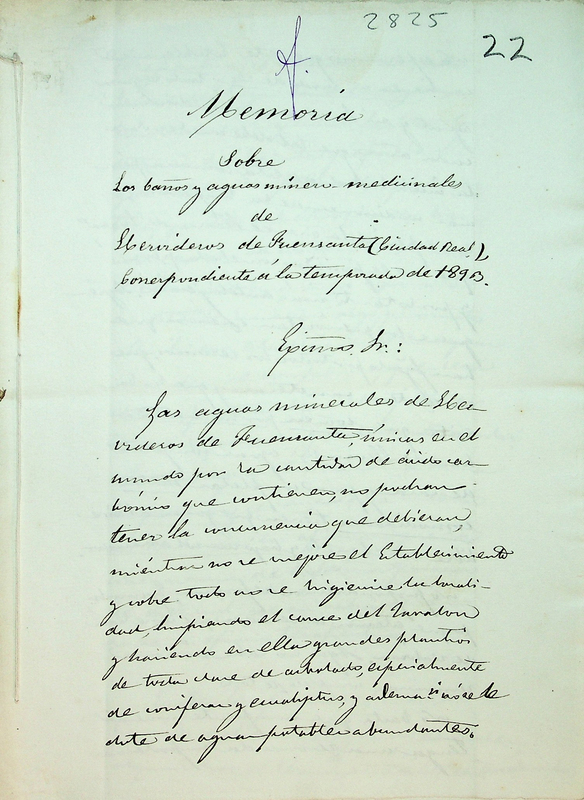 2825
22
A.
Memoria
Sobre
Los baños y aguas minero-medicinales
de
Hervideros de Fuensanta (Ciudad Real)
Correspondiente á la temporada de 1893.
Exmo. Sr.:
Las aguas minerales de Her-
videros de Fuensanta, únicas en el
mundo por la cantidad de ácido car-
bónico que contienen, no podran
tener la concurrencia que debieran,
miéntras no se mejore el Establecimiento
y sobre todo no se higienice la locali-
dad, limpiando el cauce del Javalon
y haciendo en ella grandes plantios
de toda clase de arbolado, especialmente
de coniferas y eucaliptus, y ademas no se le
dote de aguas potables abundantes.